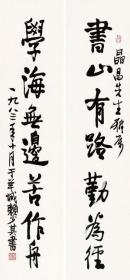 先生
書山有路勤為徑
學海無邊苦作舟
一九八三年十月于羊城賴少其書